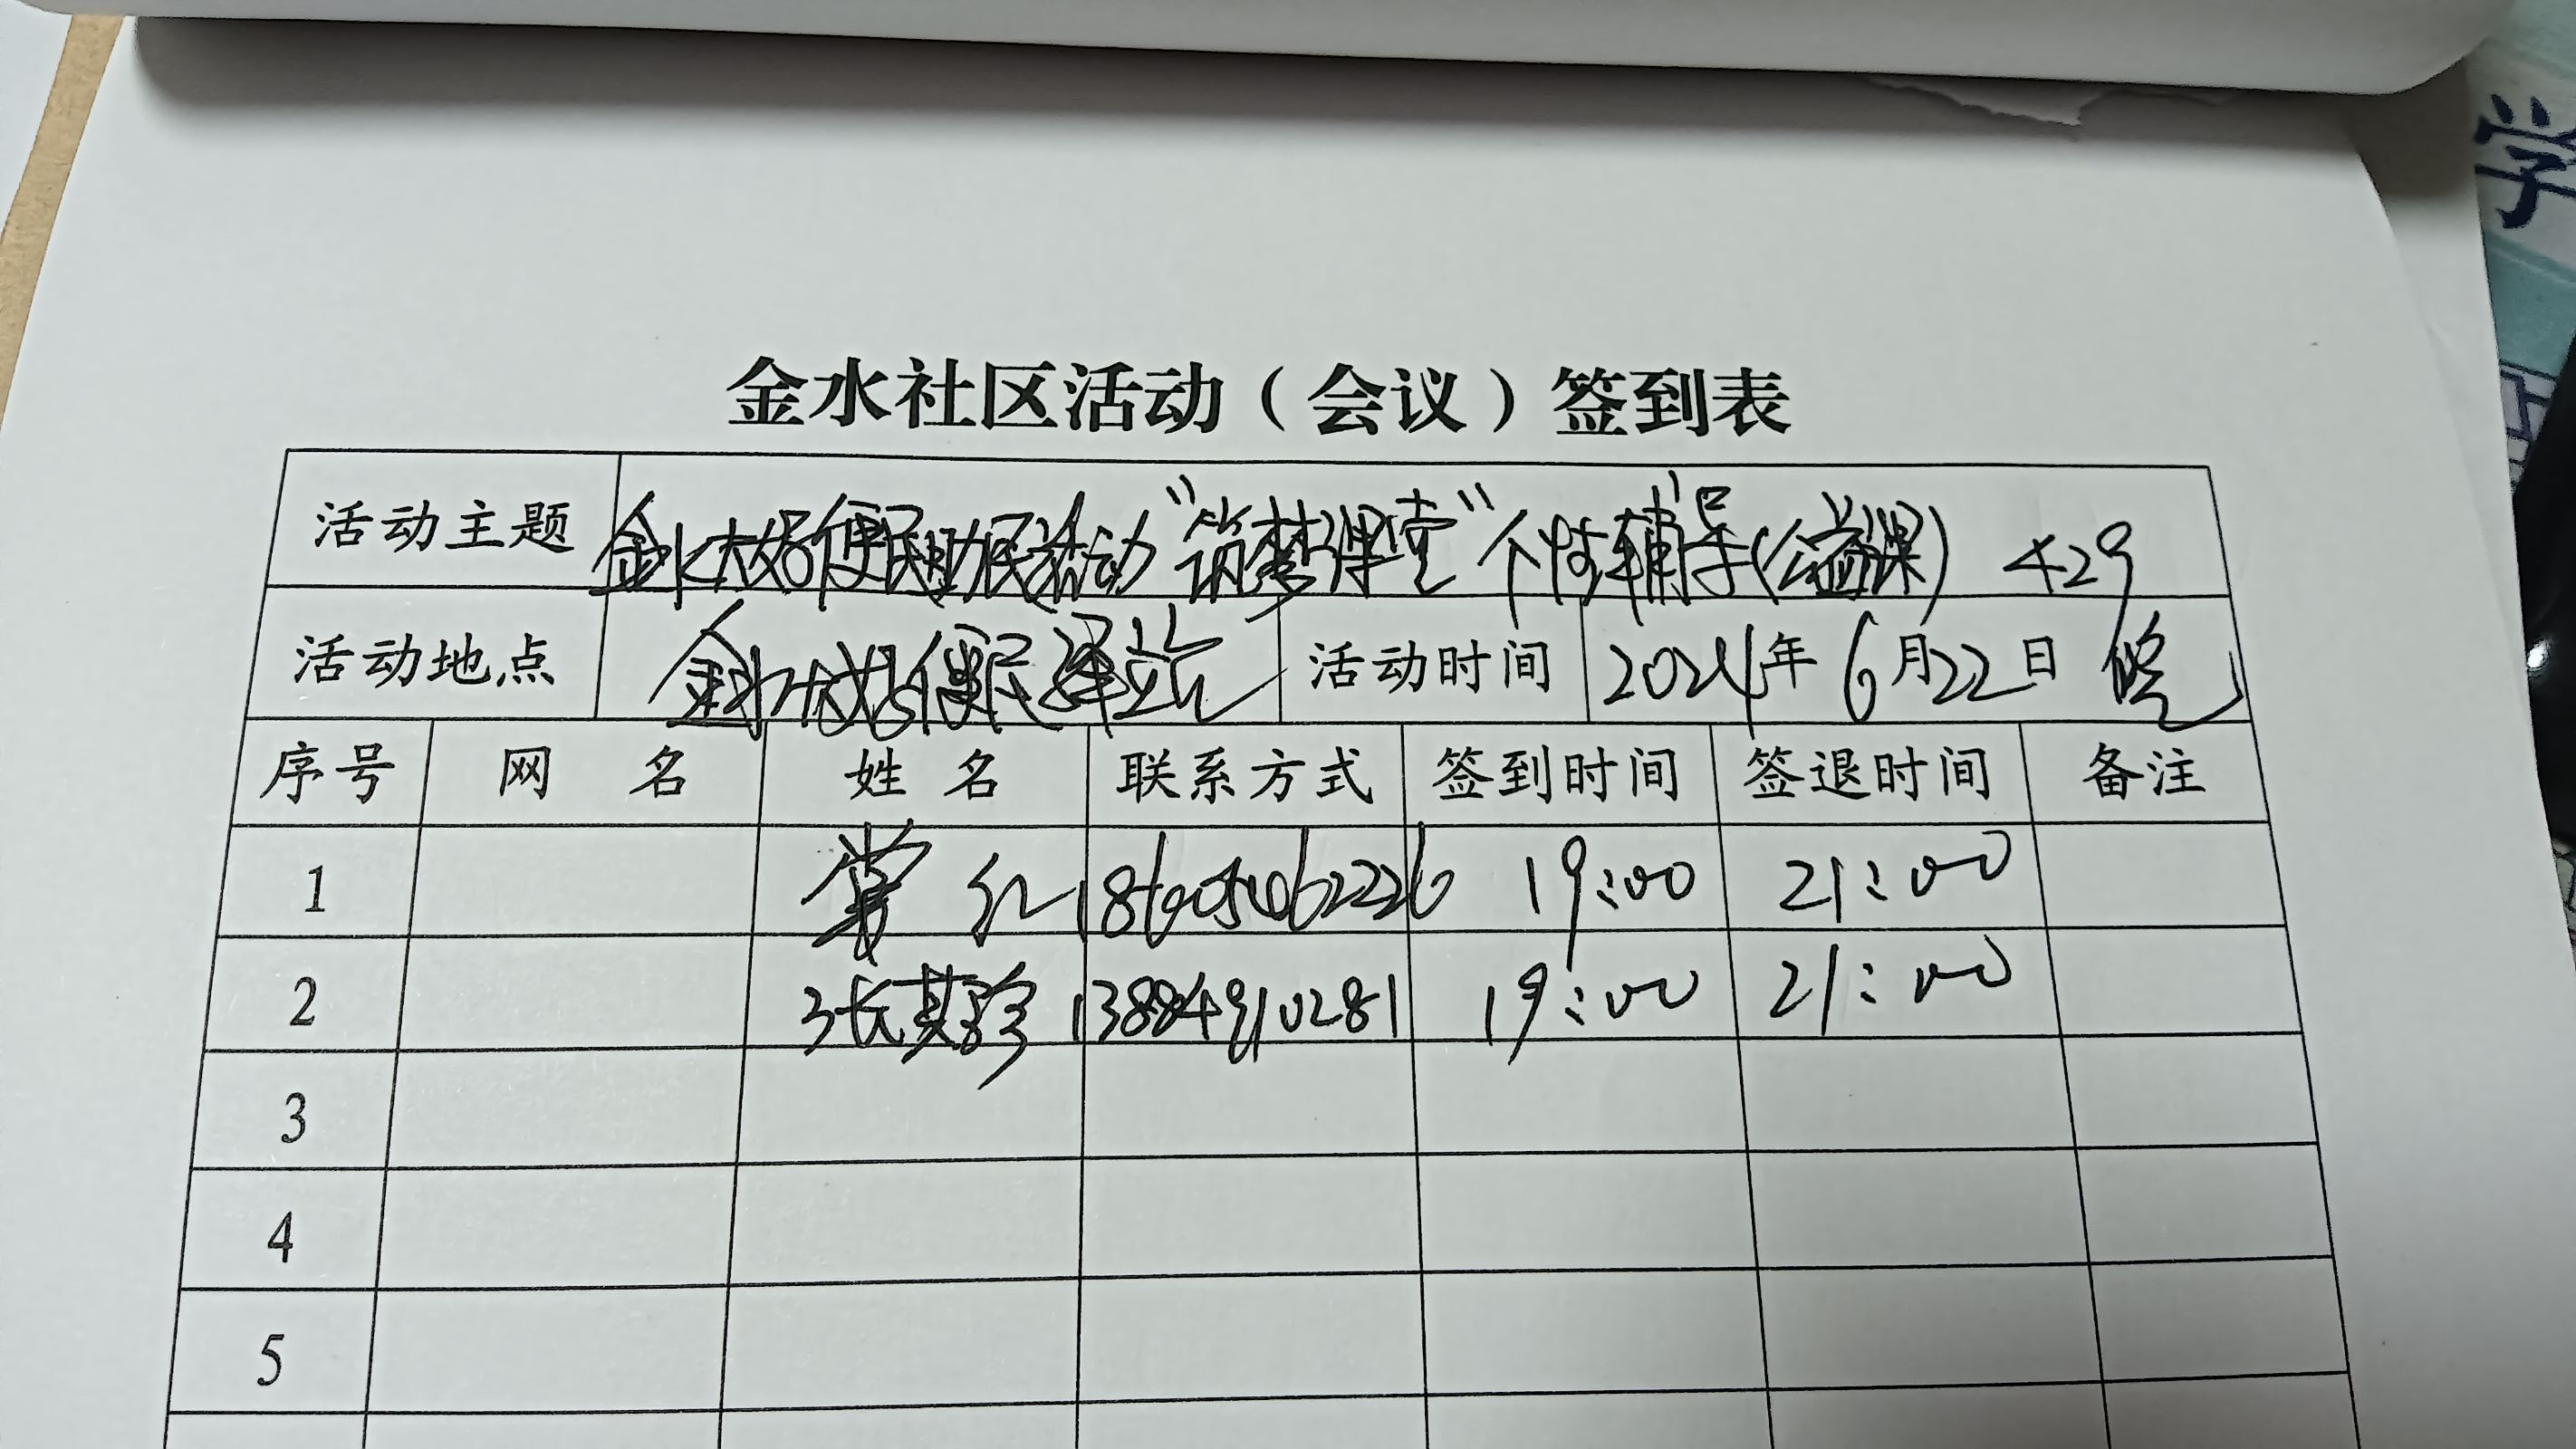 学
金水社区活动（会议）签到表
活动主题 金水大姨便民助民活动“筑梦课堂”个性辅导（公益课） 429
活动地点 金水大姨便民驿站 活动时间 2024年6月22日 晚
序号 网 名 姓 名 联系方式 签到时间 签退时间 备注
1 红 19:00 21:00
2 张其珍 13884910281 19:00 21:00
3
4
5